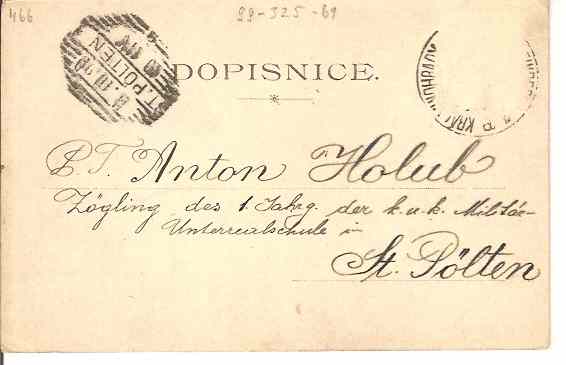 466
99-325-69
ST. PÖLTEN
DOPISNICE.
P.T. Anton Holub
Zögling des 1. Jahrg. der k.u.k. Militär-
Unterrealschule in
St. Pölten